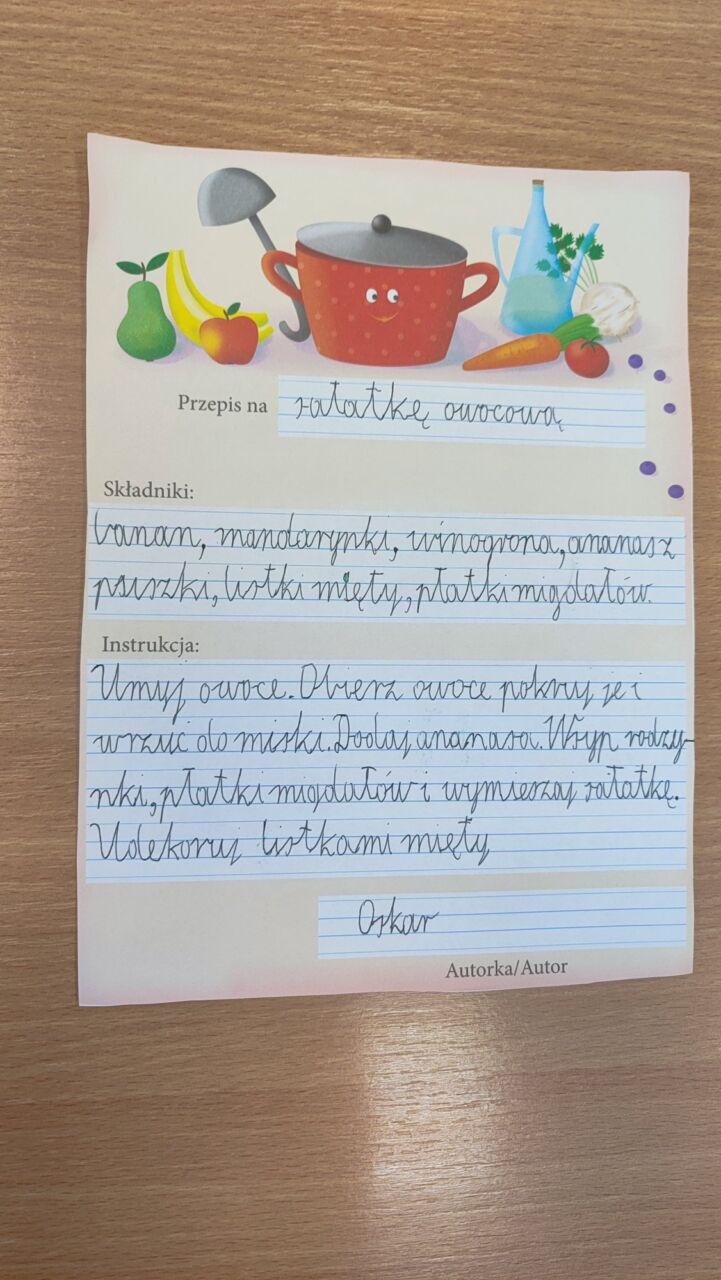 Przepis na sałatkę owocową
Składniki:
banan, mandarynki, winogrona, ananas z
puszki, listki mięty, płatki migdałów.
Instrukcja:
Umyj owoce. Obierz owoce pokruj je i
wrzuć do miski. Dodaj ananasa. Wsyp rodzy-
nki, płatki migdałów i wymieszaj sałatkę.
Udekoruj listkami mięty
Oskar
Autorka/Autor